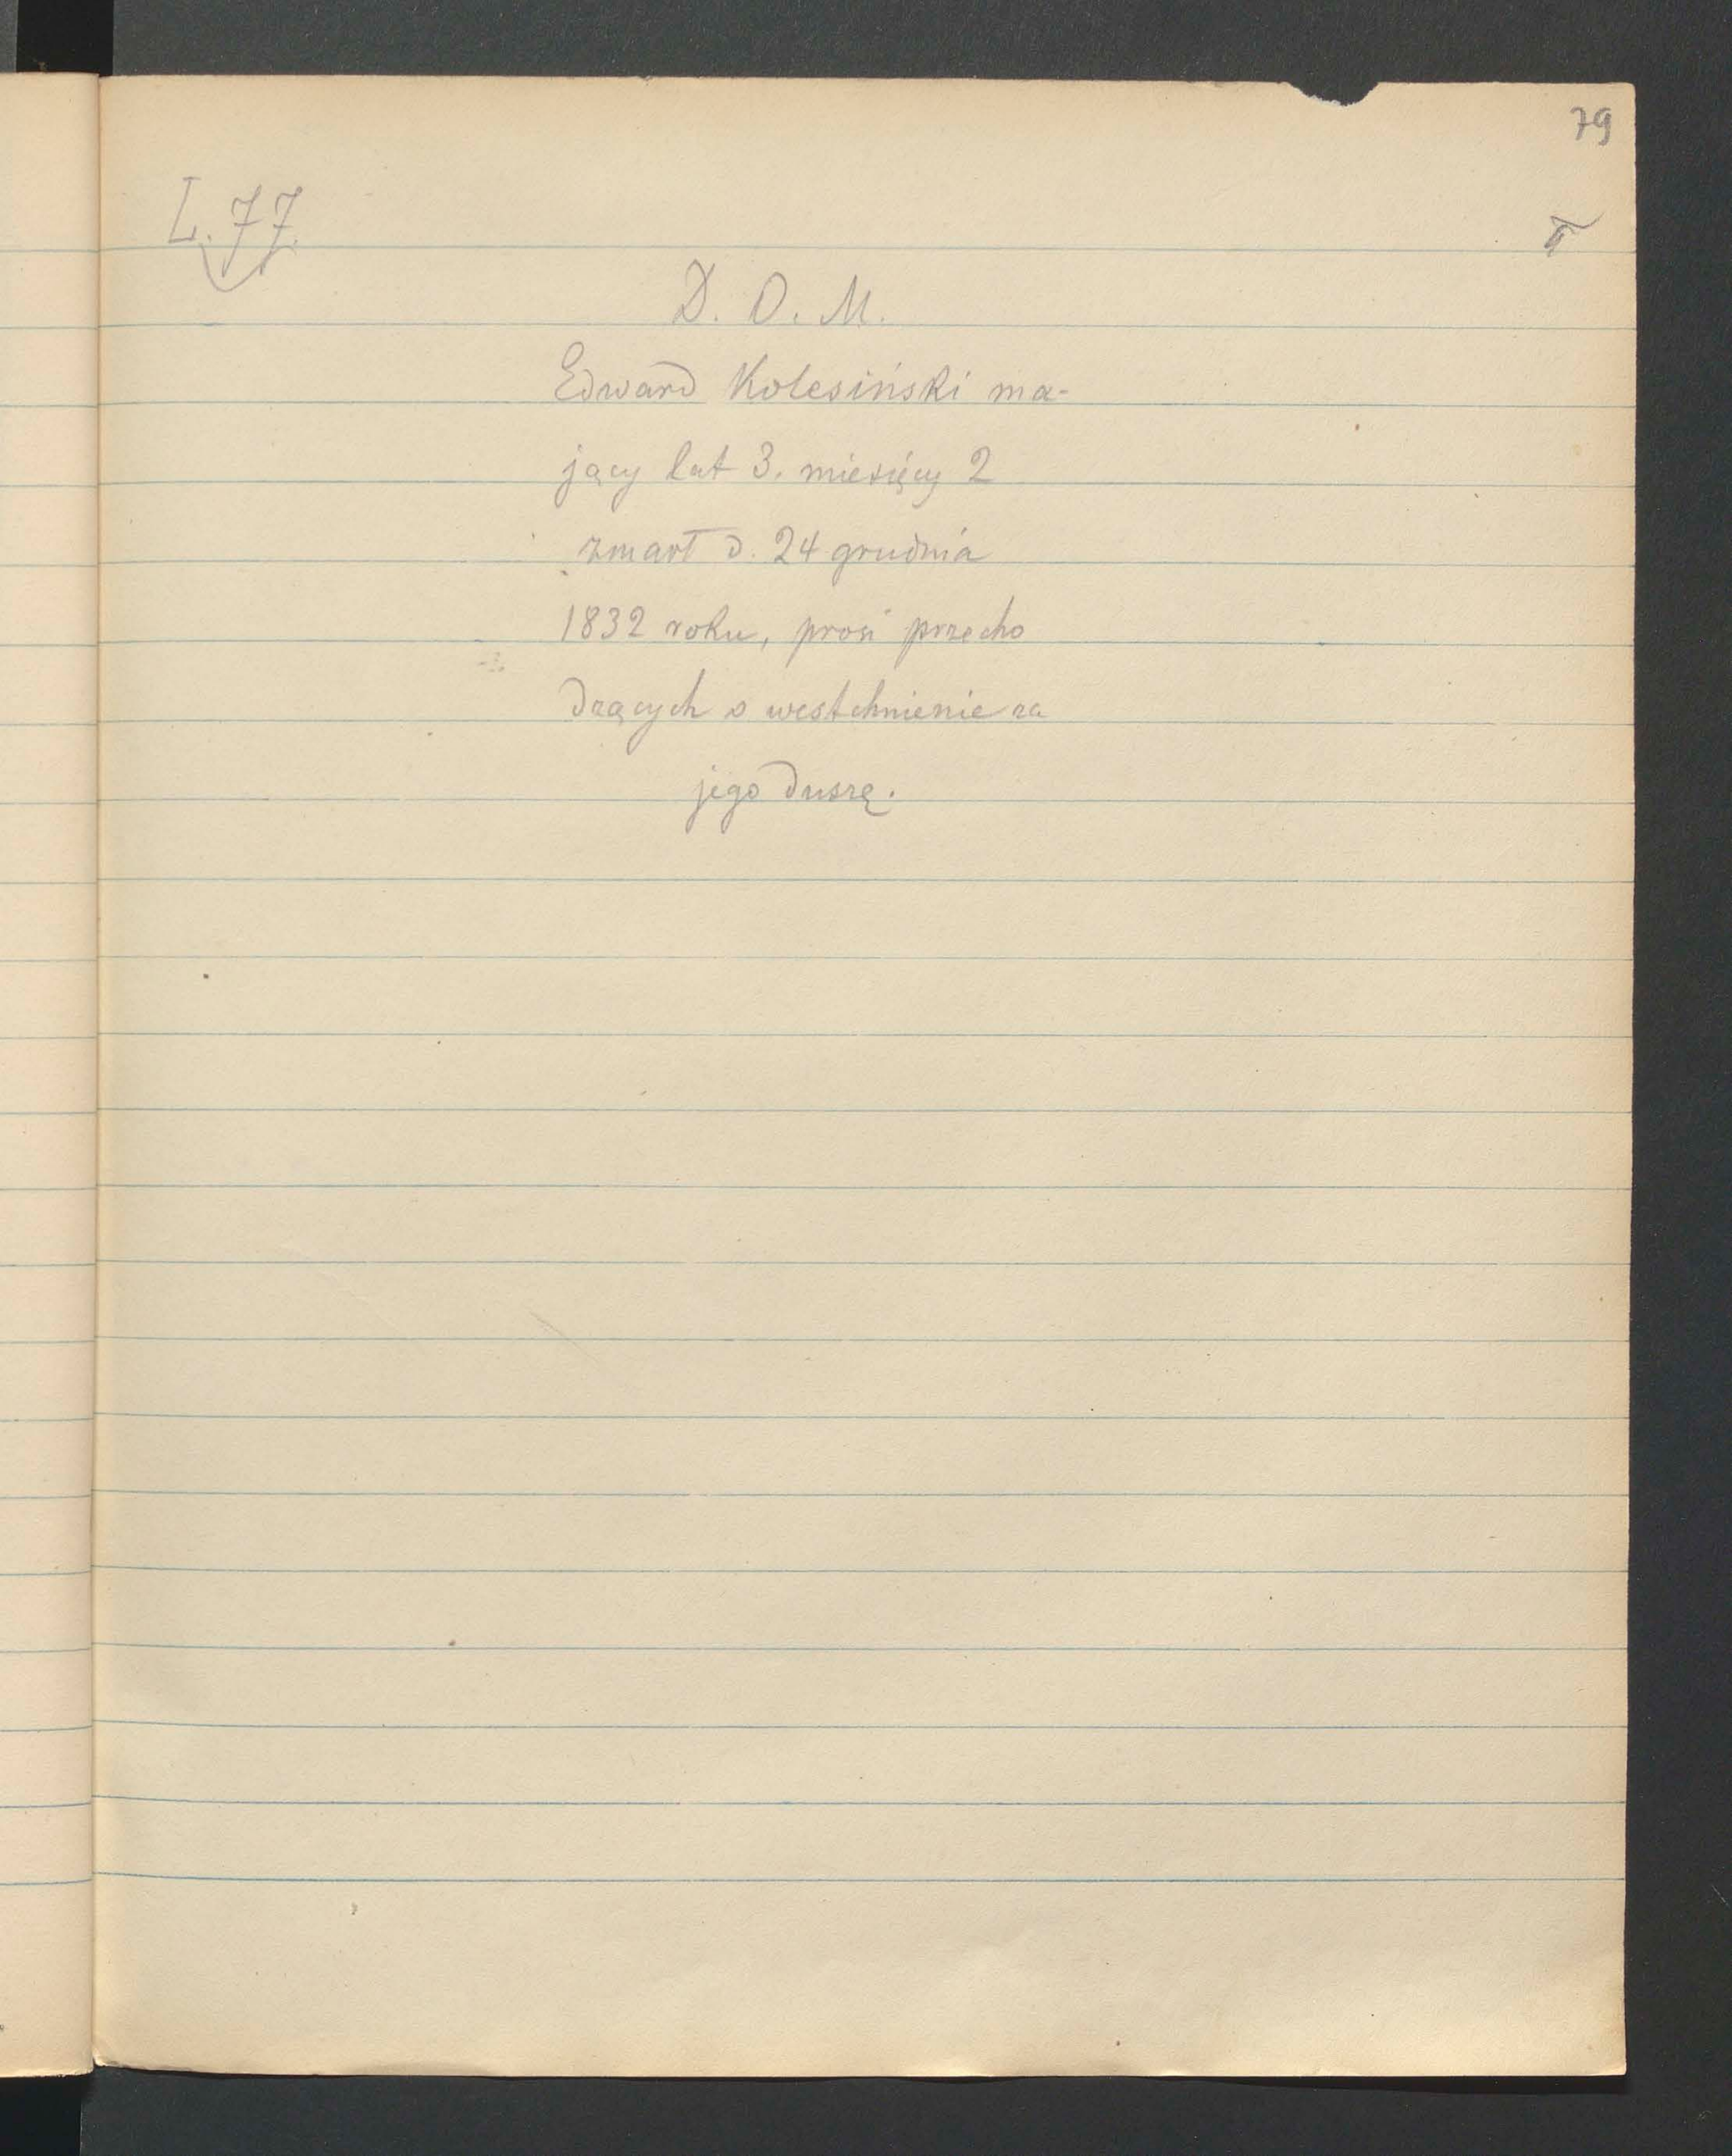 79
L. 77.
D. O. M.
Edward Kolesiński ma-
jący lat 3. miesięcy 2
zmarł d. 24 grudnia
1832 roku, prosi przecho
dzących o westchnienie za
jego duszę.